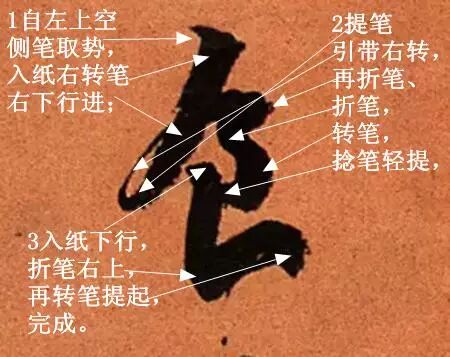 1自左上空
侧笔取势，
入纸右转笔
右下行进；
2提笔
引带右转，
再折笔、
折笔，
转笔，
捻笔轻提，
3入纸下行，
折笔右上，
再转笔提起，
完成。